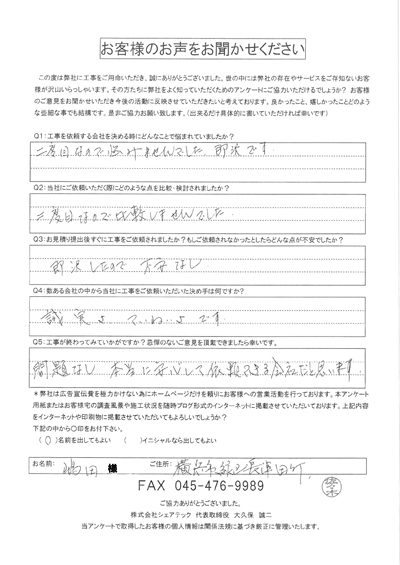 お客様のお声をお聞かせください
この度は弊社に工事をご用命いただき、誠にありがとうございました。世の中には弊社の存在やサービスをご存知ないお客
様が沢山いらっしゃいます。その方たちに弊社をよく知っていただくためのアンケートにご協力いただけるでしょうか？ お客様
のご意見をお聞かせいただき今後の活動に反映させていただきたいと考えております。良かったこと、嬉しかったことどのよう
な些細な事でも結構です、是非ご協力お願い致します。（出来るだけ具体的に書いていただければ幸いです）
Q1：工事を依頼する会社を決める時にどんなことで悩まれていましたか？
二度目なので悩みませんでした。即決です
Q2：当社にご依頼いただく際にどのような点を比較・検討されましたか？
二度目なので比較しませんでした
Q3：お見積り提出後すぐに工事をご依頼されましたか？もしご依頼されなかったとしたらどんな点が不安でしたか？
即決したので 不安なし
Q4：数ある会社の中から当社に工事をご依頼いただいた決め手は何ですか？
誠実さ ていねいさ です
Q5：工事が終わってみていかがですか？忌憚のないご意見を頂戴できましたら幸いです。
問題なし 本当に安心して依頼できる会社だと思います
＊弊社は広告宣伝費を極力かけない為にホームページだけを頼りにお客様への営業活動を行っております。本アンケート
用紙またはお客様宅の調査風景や施工状況を随時ブログ形式のインターネットに掲載させていただいております。上記内容
をインターネットや印刷物に掲載させていただいてもよろしいでしょうか？
下記の中から〇印をお付下さい。
（〇）名前を出してもよい （ ）イニシャルなら出してもよい
お名前： 嶋田 様 ご住所： 横浜市緑区長津田町
FAX 045-476-9989
ご協力ありがとうございました。
株式会社シェアテック 代表取締役 大久保 誠二
当アンケートで取得したお客様の個人情報は関係法規に基づき厳正に管理いたします。